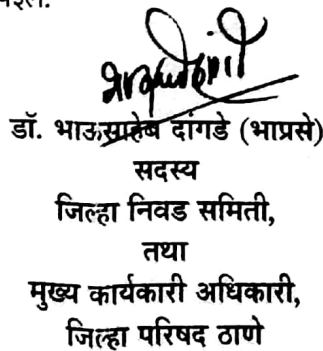 डॉ. भाऊसाहेब दांगडे (भाप्रसे)
सदस्य
जिल्हा निवड समिती,
तथा
मुख्य कार्यकारी अधिकारी,
जिल्हा परिषद ठाणे